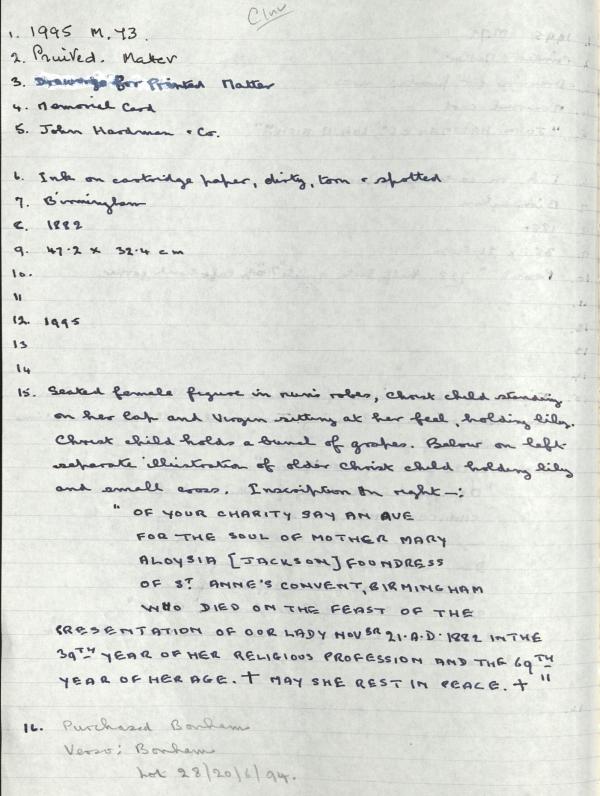 1. 1995 M. 43.
2. Printed. Matter
3. Drawings for Printed Matter
4. Memorial Card
5. John Hardman & Co.
6. Ink on cartridge paper, dirty, torn & spotted
7. Birmingham
8. 1882
9. 47.2 x 32.4 cm
10.
11
12. 1995
13
14
15. Seated female figure in nun's robes, Christ child standing
on her lap and Virgin sitting at her feet, holding lily.
Christ child holds a bunch of grapes. Below on left
separate illustration of older Christ child holding lily
and small cross. Inscription on right —:
" OF YOUR CHARITY SAY AN AVE
FOR THE SOUL OF MOTHER MARY
ALOYSIA [JACKSON] FOUNDRESS
OF ST. ANNE'S CONVENT, BIRMINGHAM
WHO DIED ON THE FEAST OF THE
PRESENTATION OF OUR LADY NOVBR 21. A.D. 1882 IN THE
39TH YEAR OF HER RELIGIOUS PROFESSION AND THE 69TH
YEAR OF HER AGE. † MAY SHE REST IN PEACE. † "
16. Purchased Bonhams
Verso: Bonhams
Lot 28/20/6/94.